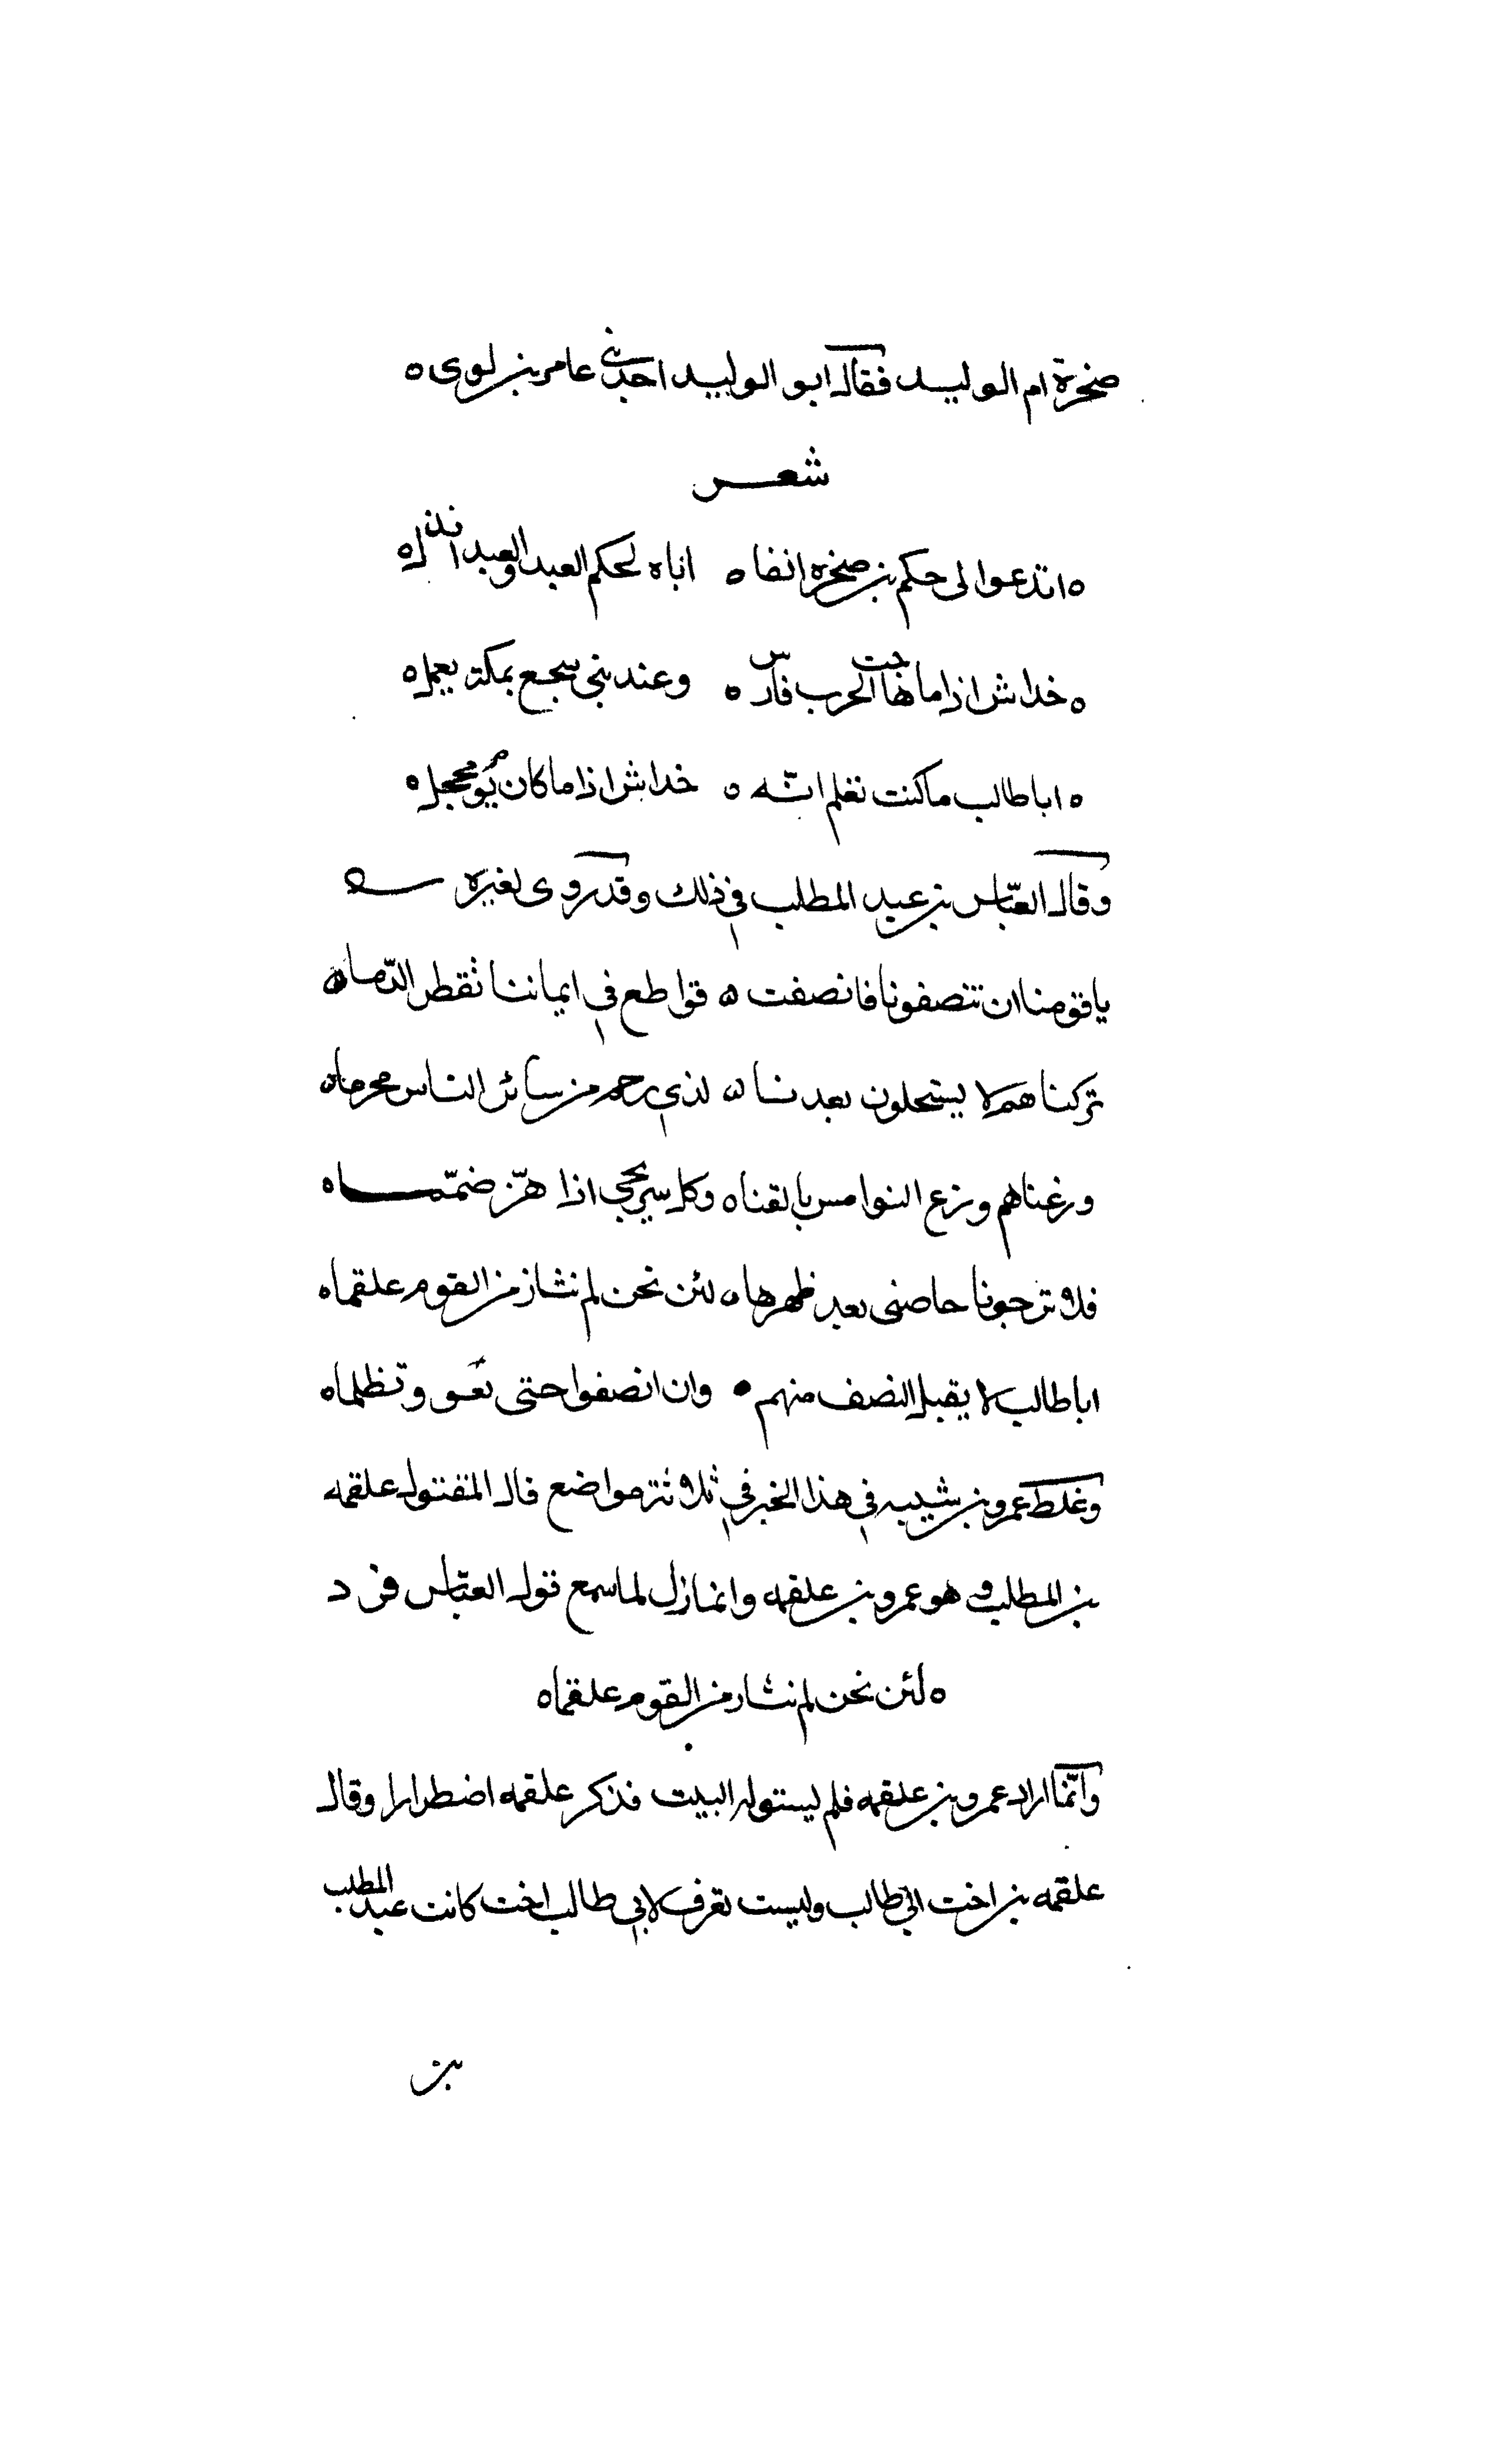 صخرة ام الوليد فقال ابو الوليد احد بني عامر بن لوي ه
شعر
ه اتدعوا لى حكم بن صخرة انفا ه اباه لحكم العبد والعبد انذل ه
ه خداش اذا ما هاجت الحرب فارس ه وعند بني سجع بمكة يعمل ه
ه ابا طالب ما كنت تعلم انه ه خداش اذا ما كان يوم محجل ه
وقال العباس بن عبد المطلب في ذلك وقد روى لغيره
يا قومنا ان تنصفونا فانصفت ه قواطع في ايماننا تقطر الدما ه
تركناهم لا يستحلون بعدنا ه لذي رحم من سائر الناس محرما ه
ورغناهم وزع النوامس بالقنا ه وكل سريجي اذا هز ضمما ه
فلا ترجونا حاصنى بعد طهرها ه لئن نحن لم نثار من القوم علقما ه
ابا طالب لا يقبل النصف منهم وان انصفوا حتى تعق وتظلما ه
وغلط عمرو بن شبيبه في هذا الخبر في ثلاثة مواضع قال المقتول علقمه
بن المطلب وهو عمرو بن علقمه وانما زل لما سمع قول العباس
ه لئن نحن لم نثار من القوم علقما ه
وانما اراد عمرو بن علقمه فلم يستو له البيت فذكر علقمه اضطرارا وقال
علقمه بن اخت ابي طالب وليست تعرف لابي طالب اخت كانت عند المطلب
بن